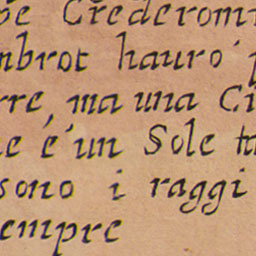 Crederomi
mbrot hauro
rre, ma una Ci
e è un Sole
sono i raggi
empre